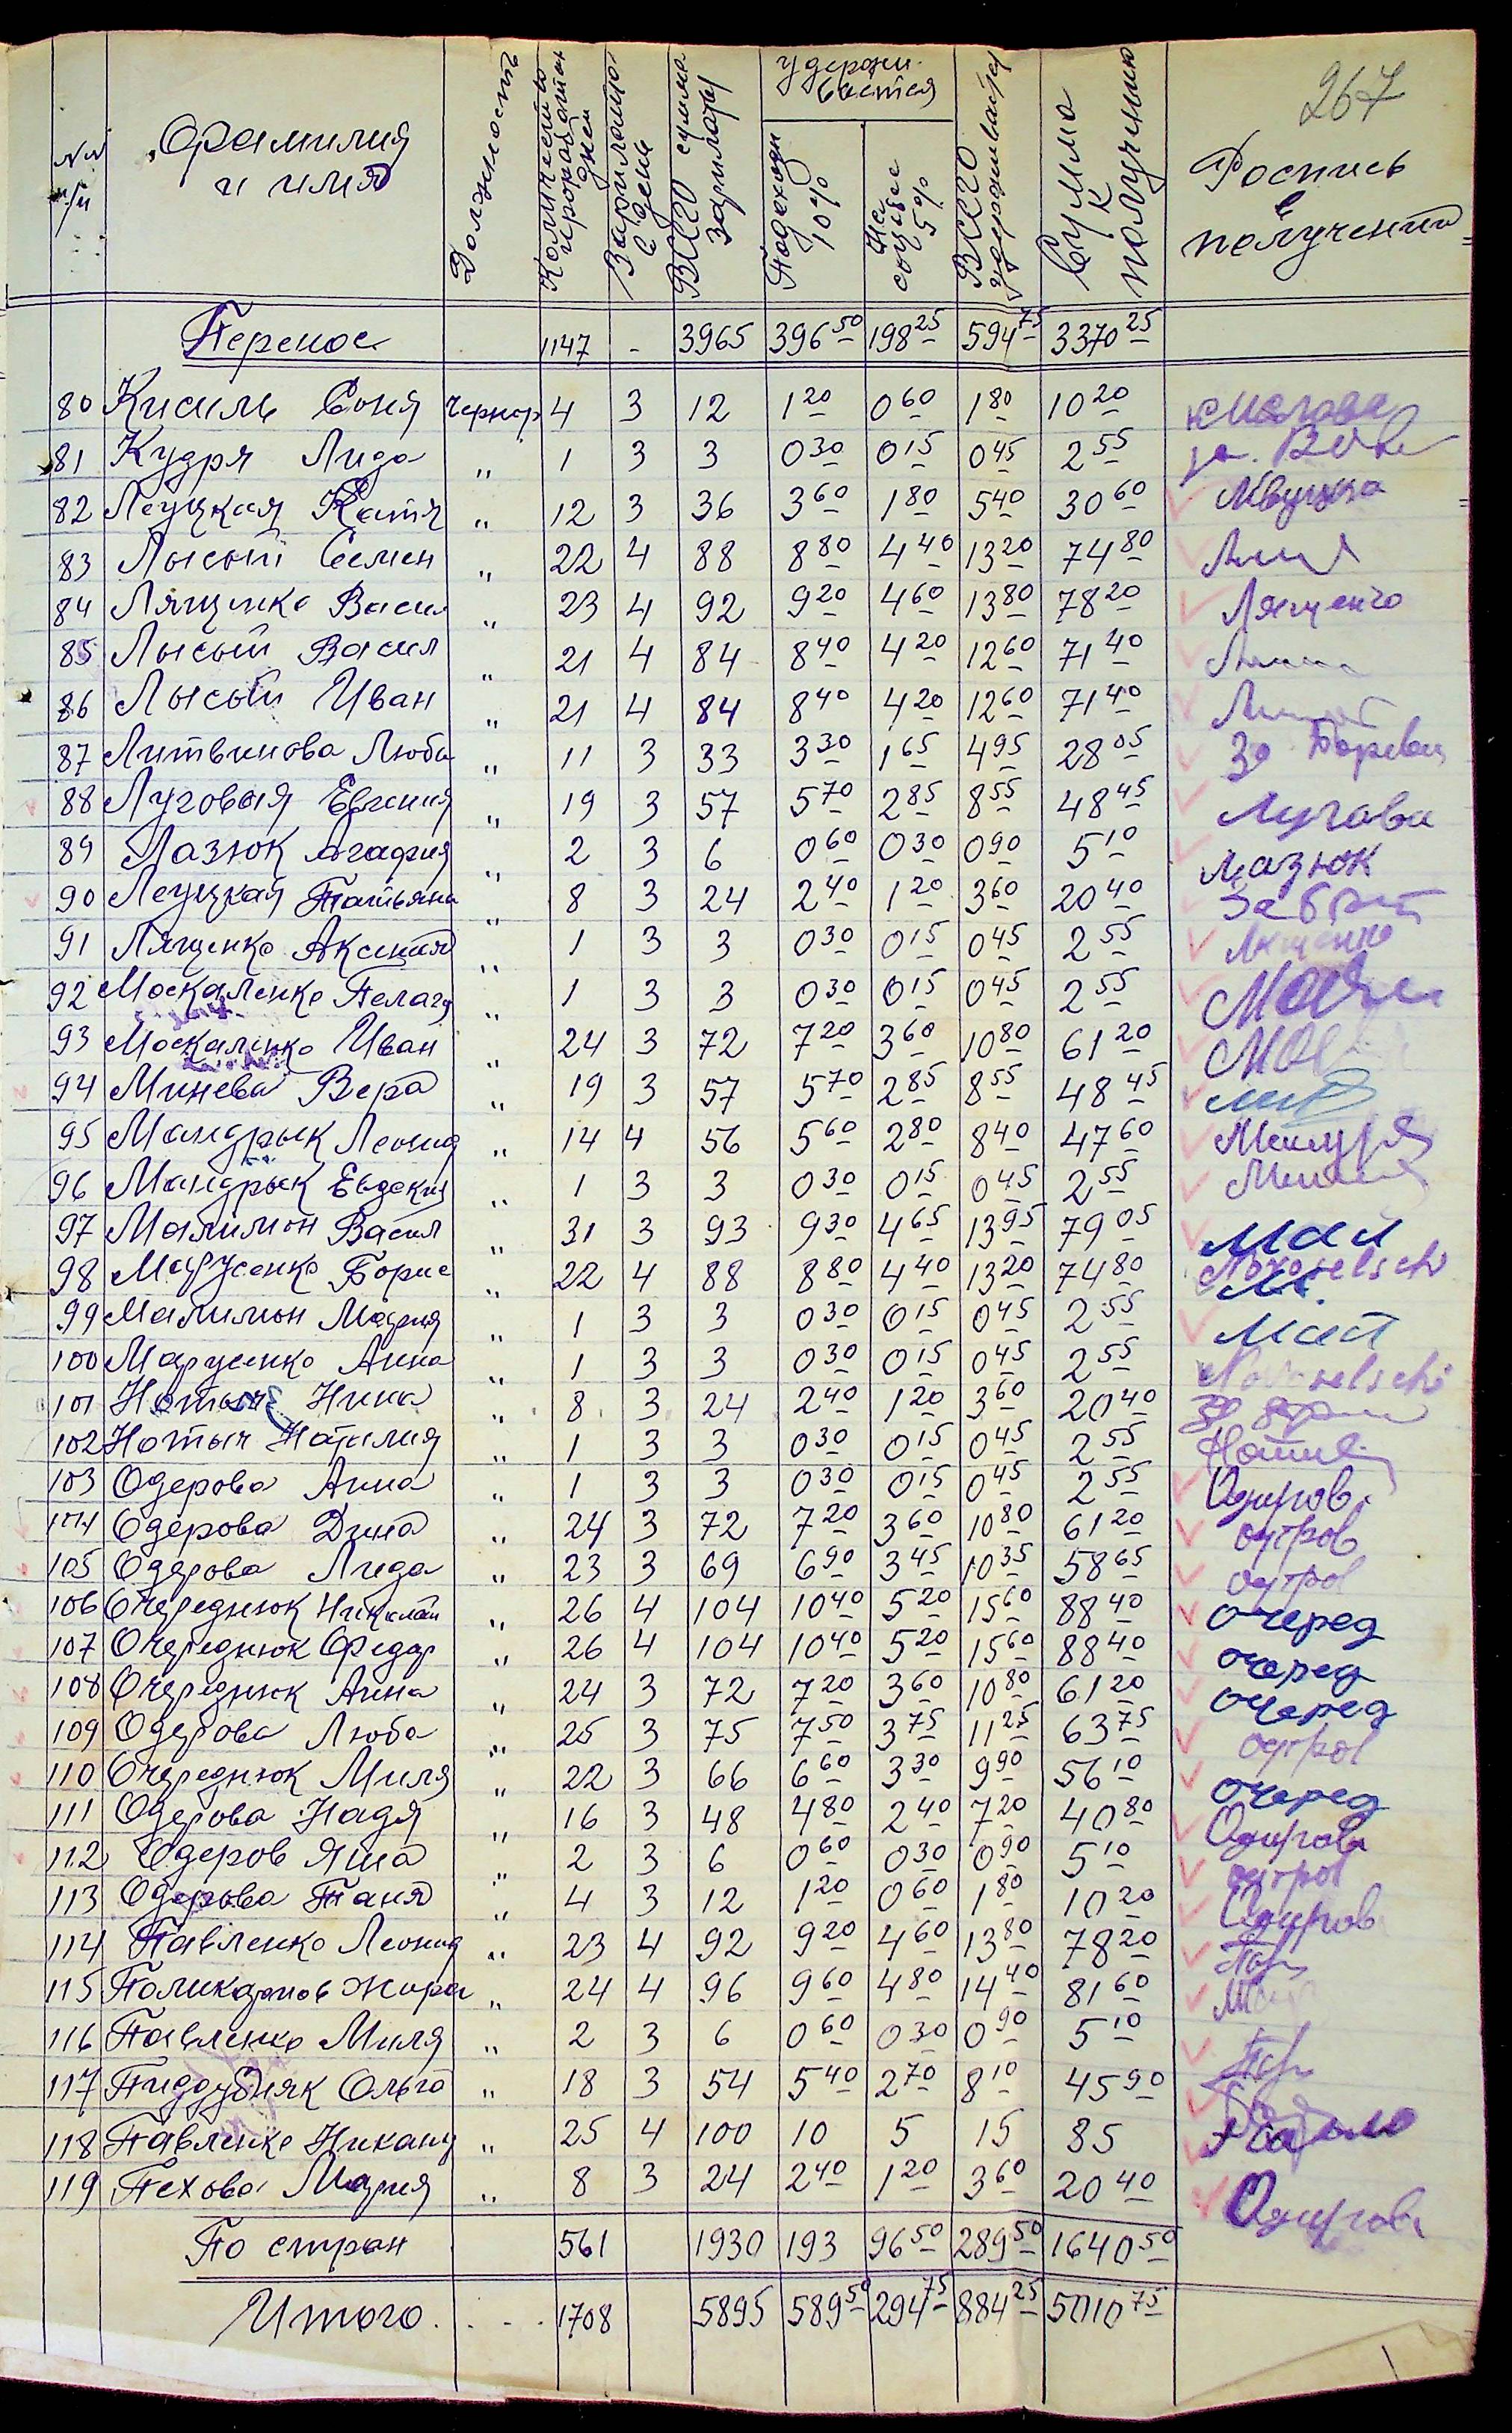 267
№№ п/п Фамилия и имя Должность Количество проработан дней Зарплата в день Всего сумма зарплаты удержи-вается Подоходн 10% На соцобес 5% Всего удерживается Сумма к получению Роспись в получении
Перенос 1147 - 3965 396 50 198 25 594 75 3370 25
80 Кисиль Соня чернор 4 3 12 1 20 0 60 1 80 10 20
81 Кудря Лида " 1 3 3 0 30 0 15 0 45 2 55
82 Леуцкая Катя " 12 3 36 3 60 1 80 5 40 30 60
83 Лысый Семен " 22 4 88 8 80 4 40 13 20 74 80
84 Лященко Васил " 23 4 92 9 20 4 60 13 80 78 20 Лященко
85 Лысый Васил " 21 4 84 8 40 4 20 12 60 71 40
86 Лысый Иван " 21 4 84 8 40 4 20 12 60 71 40
87 Литвинова Люба " 11 3 33 3 30 1 65 4 95 28 05 за
88 Луговая Евгения " 19 3 57 5 70 2 85 8 55 48 45 Лугова
89 Лазюк Агафия " 2 3 6 0 60 0 30 0 90 5 10 Лазюк
90 Леуцкая Татьяна " 8 3 24 2 40 1 20 3 60 20 40
91 Лященко Аксения " 1 3 3 0 30 0 15 0 45 2 55 Лященко
92 Москаленко Пелагя " 1 3 3 0 30 0 15 0 45 2 55
93 Москаленко Иван " 24 3 72 7 20 3 60 10 80 61 20
94 Минева Вера " 19 3 57 5 70 2 85 8 55 48 45
95 Мандрык Леонид " 14 4 56 5 60 2 80 8 40 47 60
96 Мандрык Евдокия " 1 3 3 0 30 0 15 0 45 2 55
97 Малимон Васил " 31 3 93 9 30 4 65 13 95 79 05 Мал
98 Марусенко Борис " 22 4 88 8 80 4 40 13 20 74 80
99 Малимон Мария " 1 3 3 0 30 0 15 0 45 2 55 Мал
100 Марусенко Анна " 1 3 3 0 30 0 15 0 45 2 55
101 Нотыч Нина " 8 3 24 2 40 1 20 3 60 20 40
102 Нотыч Наталия " 1 3 3 0 30 0 15 0 45 2 55
103 Одерова Анна " 1 3 3 0 30 0 15 0 45 2 55 Одиров
104 Одерова Дина " 24 3 72 7 20 3 60 10 80 61 20
105 Одерова Лида " 23 3 69 6 90 3 45 10 35 58 65
106 Очереднюк Николай " 26 4 104 10 40 5 20 15 60 88 40 очеред
107 Очереднюк Федор " 26 4 104 10 40 5 20 15 60 88 40 очеред
108 Очереднюк Анна " 24 3 72 7 20 3 60 10 80 61 20 очеред
109 Одерова Люба " 25 3 75 7 50 3 75 11 25 63 75
110 Очереднюк Миля " 22 3 66 6 60 3 30 9 90 56 10 очеред
111 Одерова Надя " 16 3 48 4 80 2 40 7 20 40 80 Одирова
112 Одеров Яша " 2 3 6 0 60 0 30 0 90 5 10
113 Одерова Таня " 4 3 12 1 20 0 60 1 80 10 20 Одиров
114 Павленко Леонид " 23 4 92 9 20 4 60 13 80 78 20
115 Поликарпов Жора " 24 4 96 9 60 4 80 14 40 81 60
116 Павленко Миля " 2 3 6 0 60 0 30 0 90 5 10
117 Пиддубняк Ольга " 18 3 54 5 40 2 70 8 10 45 90
118 Павленко Никанд " 25 4 100 10 5 15 85
119 Пехова Мария " 8 3 24 2 40 1 20 3 60 20 40 Одирова
По стран 561 1930 193 96 50 289 50 1640 50
Итого . . - . 1708 5895 589 50 294 75 884 25 5010 75